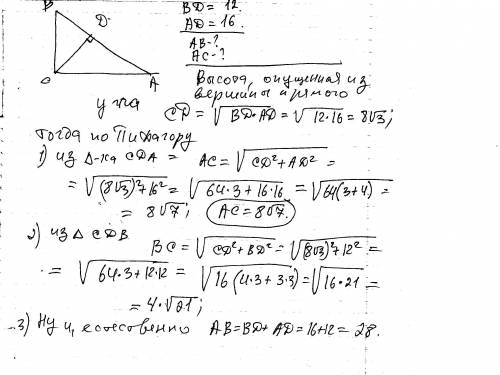 B
D
C
A
BD = 12.
AD = 16.
AB - ?
AC - ?
Высота, опущенная из
вершины прямого
угла CD = √BD·AD = √12·16 = 8√3;
тогда по Пифагору
1) из Δ-ка CDA = AC = √CD²+AD² =
= √(8√3)²+16² = √64·3+16·16 = √64(3+4) =
= 8√7; AC=8√7.
2) из Δ CDB
BC = √CD²+BD² = √(8√3)²+12² =
= √64·3+12·12 = √16(4·3+3·3) = √16·21 =
= 4·√21;
3) Ну и, естественно AB=BD+AD=16+12=28.